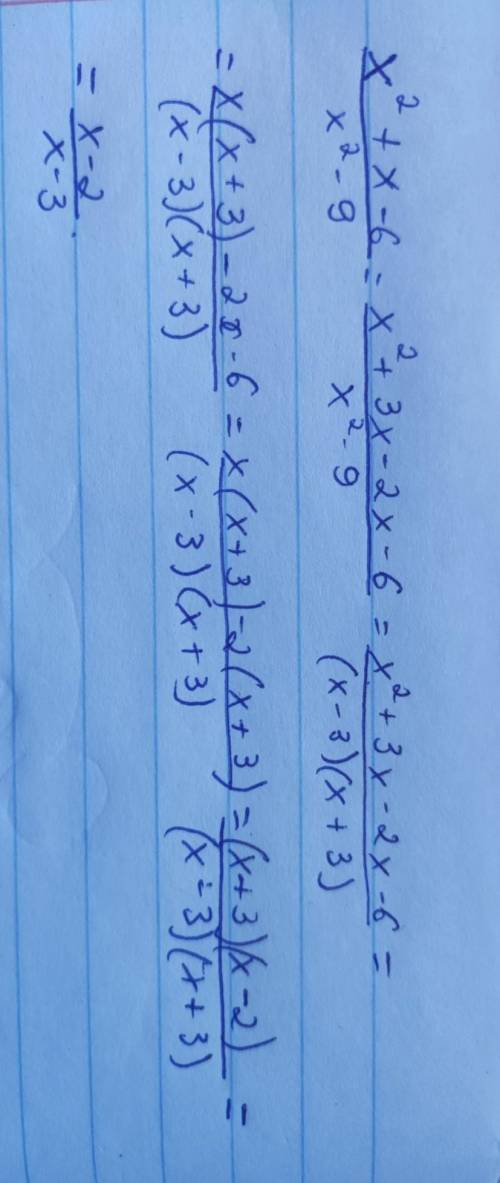 (x² + x - 6)/(x² - 9) = (x² + 3x - 2x - 6)/(x² - 9) = (x² + 3x - 2x - 6)/((x - 3)(x + 3)) =
= (x(x + 3) - 2x - 6)/((x - 3)(x + 3)) = (x(x + 3) - 2(x + 3))/((x - 3)(x + 3)) = ((x + 3)(x - 2))/((x - 3)(x + 3)) =
= (x - 2)/(x - 3).